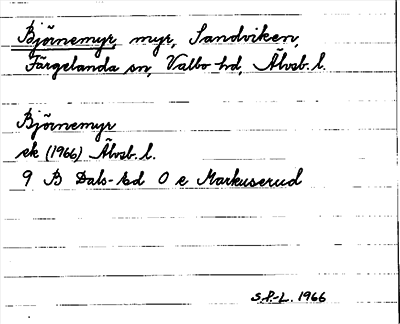 Björnemyr, myr, Sandviken,
Färgelanda sn, Valbo hd, Älvsb. l.
Björnemyr
ek (1966) Älvsb. l.
9 B Dals-Ed O e Markuserud
S.P-L. 1966